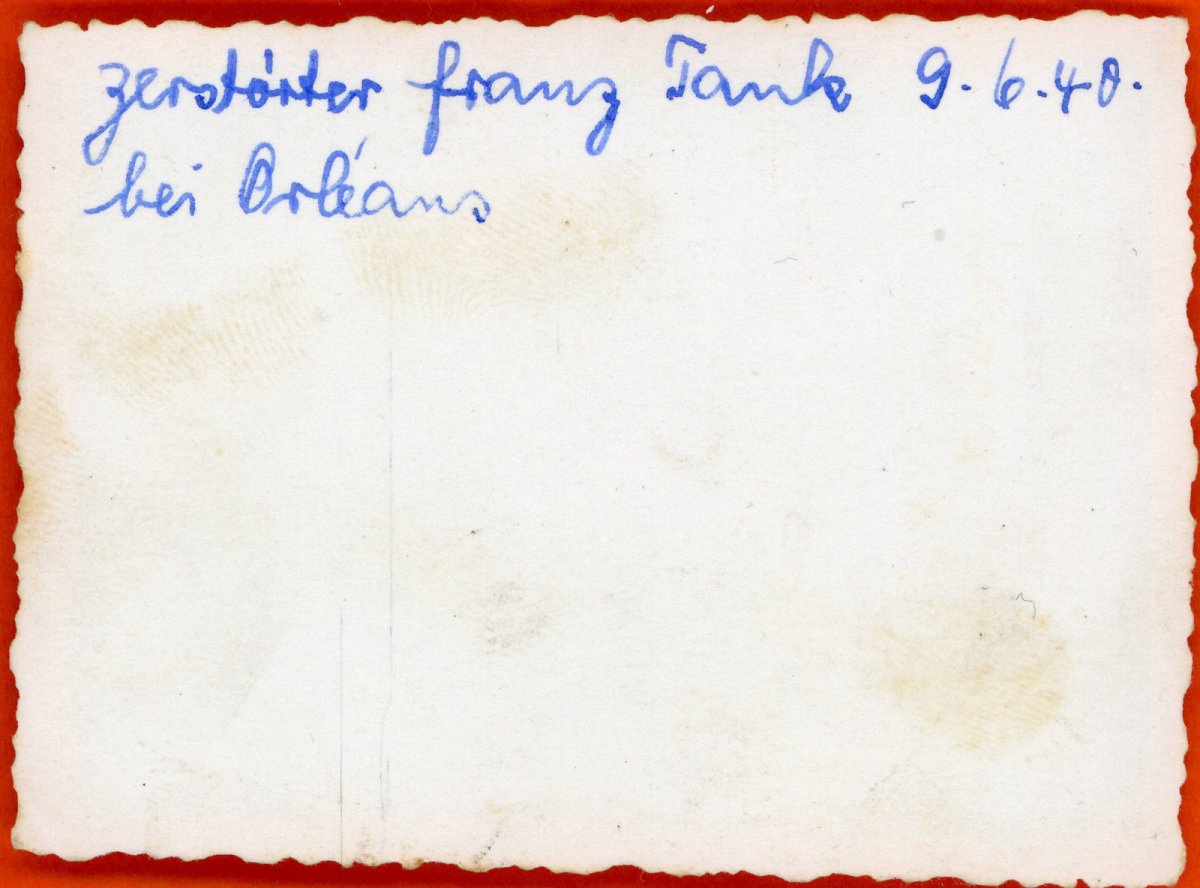 zerstörter franz Tank 9.6.40.
bei Orléans